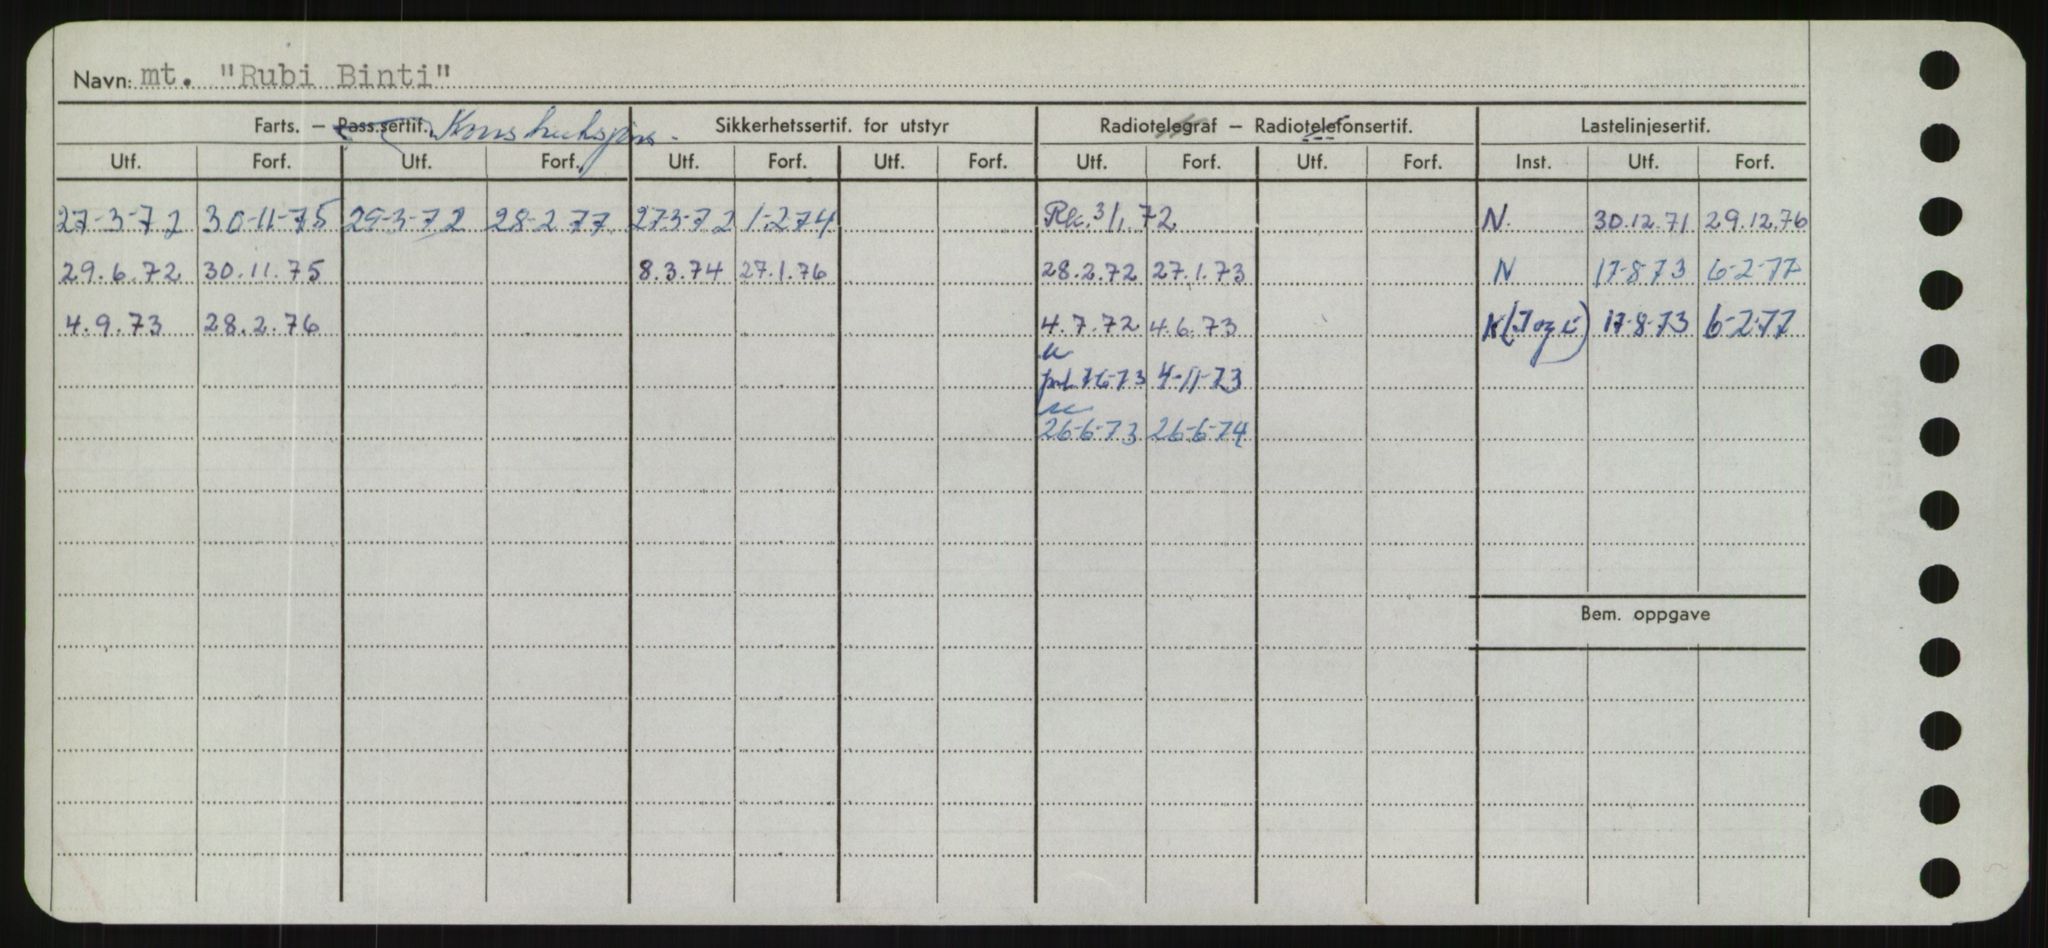 Navn: mt. "Rubi Binti"
Farts. – Pass.sertif. Konstruksjons- Sikkerhetssertif. for utstyr Radiotelegraf – Radiotelefonsertif. Lastelinjesertif.
Utf. Forf. Utf. Forf. Utf. Forf. Utf. Forf. Utf. Forf. Utf. Forf. Inst. Utf. Forf.
27-3-72 30-11-75 29-3-72 28-2-77 27-3-72 1-2-74 Rk. 3/1.72 N. 30.12.71 29.12.76
29.6.72 30.11.75 8.3.74 27.1.76 28.2.72 27.1.73 N 17-8-73 6-2-77
4.9.73 28.2.76 4.7.72 4.6.73 K 17-8-73 6-2-77
4-11-73
26-6-73 26-6-74
Bem. oppgave